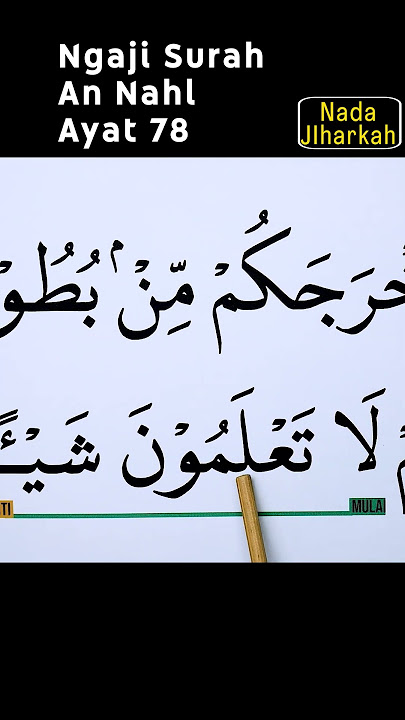 Ngaji Surah
An Nahl
Ayat 78
Nada
JIharkah
مِّنْۢ بُطُو
لَا تَعْلَمُوْنَ شَيْـًٔ
MULAI
TI